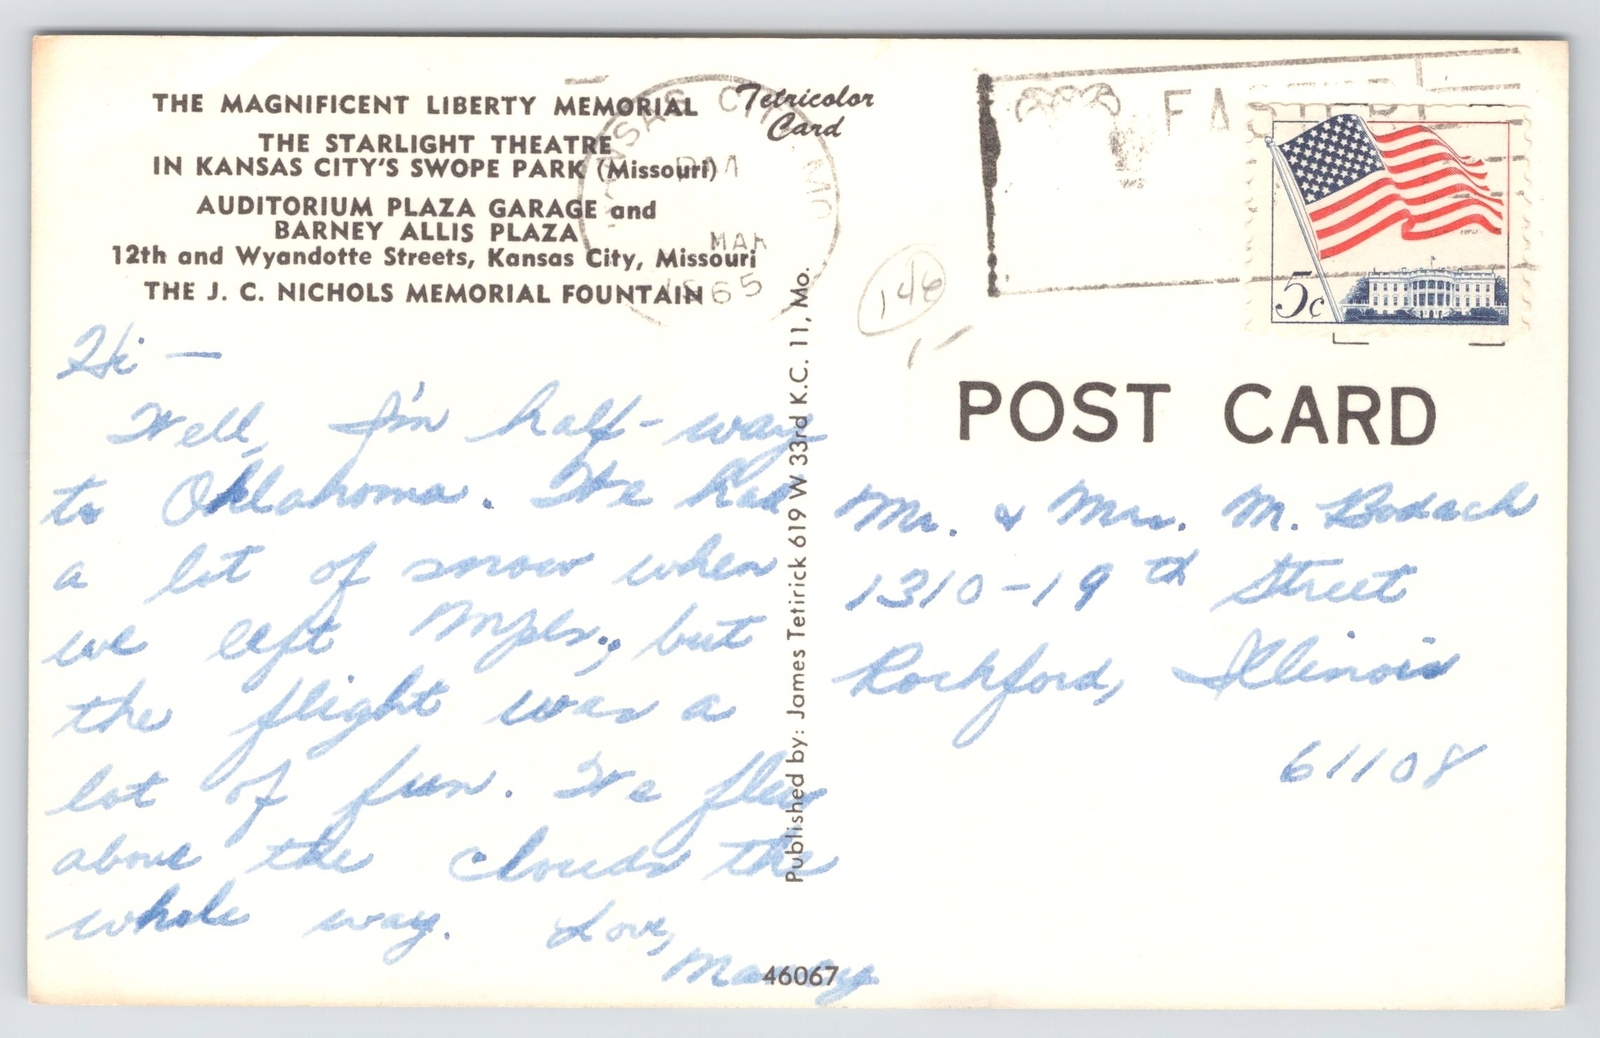 THE MAGNIFICENT LIBERTY MEMORIAL
THE STARLIGHT THEATRE
IN KANSAS CITY'S SWOPE PARK (Missouri)
AUDITORIUM PLAZA GARAGE and
BARNEY ALLIS PLAZA
12th and Wyandotte Streets, Kansas City, Missouri
THE J. C. NICHOLS MEMORIAL FOUNTAIN
Tetricolor
Card
KANSAS CITY MO
PM
MAR
1965
EASTER
5c
146
POST CARD
Hi —
Well, I'm half-way
to Oklahoma. We had
a lot of snow when
we left Mpls., but
the flight was a
lot of fun. We flew
above the clouds the
whole way. Love,
Published by: James Tetirick 619 W 33rd K.C. 11, Mo.
46067
Mr. & Mrs. M. Bodach
1310-19th Street
Rockford, Illinois
61108